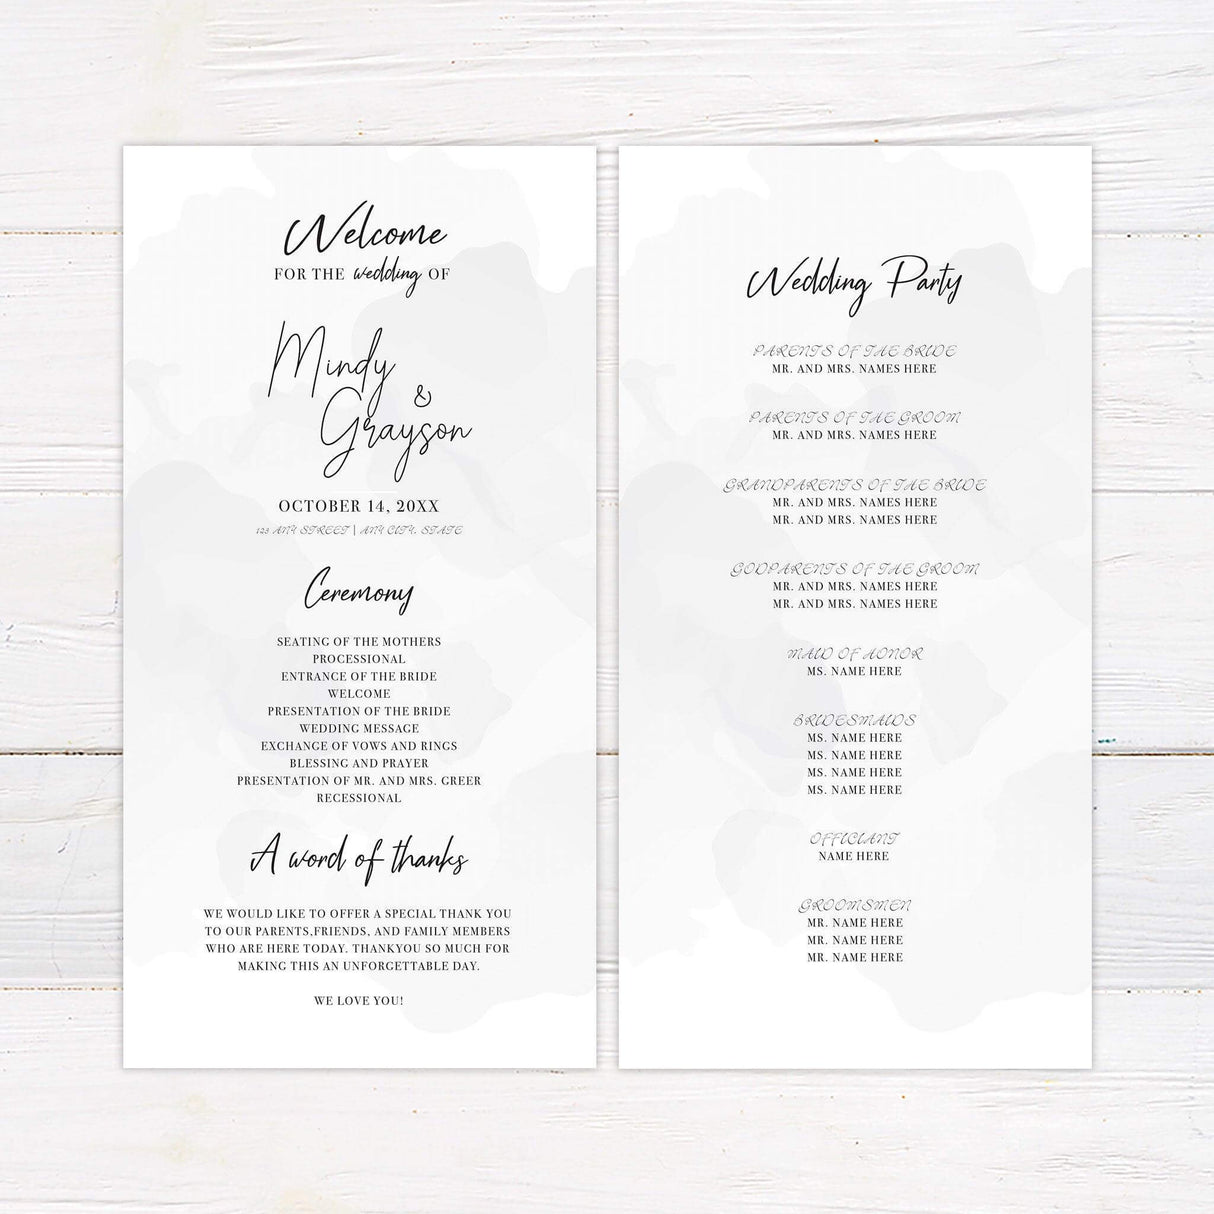 Welcome
FOR THE wedding OF
Mindy
&
Grayson
OCTOBER 14, 20XX
123 ANY STREET | ANY CITY, STATE
Ceremony
SEATING OF THE MOTHERS
PROCESSIONAL
ENTRANCE OF THE BRIDE
WELCOME
PRESENTATION OF THE BRIDE
WEDDING MESSAGE
EXCHANGE OF VOWS AND RINGS
BLESSING AND PRAYER
PRESENTATION OF MR. AND MRS. GREER
RECESSIONAL
A word of thanks
WE WOULD LIKE TO OFFER A SPECIAL THANK YOU
TO OUR PARENTS,FRIENDS, AND FAMILY MEMBERS
WHO ARE HERE TODAY. THANKYOU SO MUCH FOR
MAKING THIS AN UNFORGETTABLE DAY.
WE LOVE YOU!
Wedding Party
PARENTS OF THE BRIDE
MR. AND MRS. NAMES HERE
PARENTS OF THE GROOM
MR. AND MRS. NAMES HERE
GRANDPARENTS OF THE BRIDE
MR. AND MRS. NAMES HERE
MR. AND MRS. NAMES HERE
GODPARENTS OF THE GROOM
MR. AND MRS. NAMES HERE
MR. AND MRS. NAMES HERE
MAID OF HONOR
MS. NAME HERE
BRIDESMAIDS
MS. NAME HERE
MS. NAME HERE
MS. NAME HERE
MS. NAME HERE
OFFICIANT
NAME HERE
GROOMSMEN
MR. NAME HERE
MR. NAME HERE
MR. NAME HERE